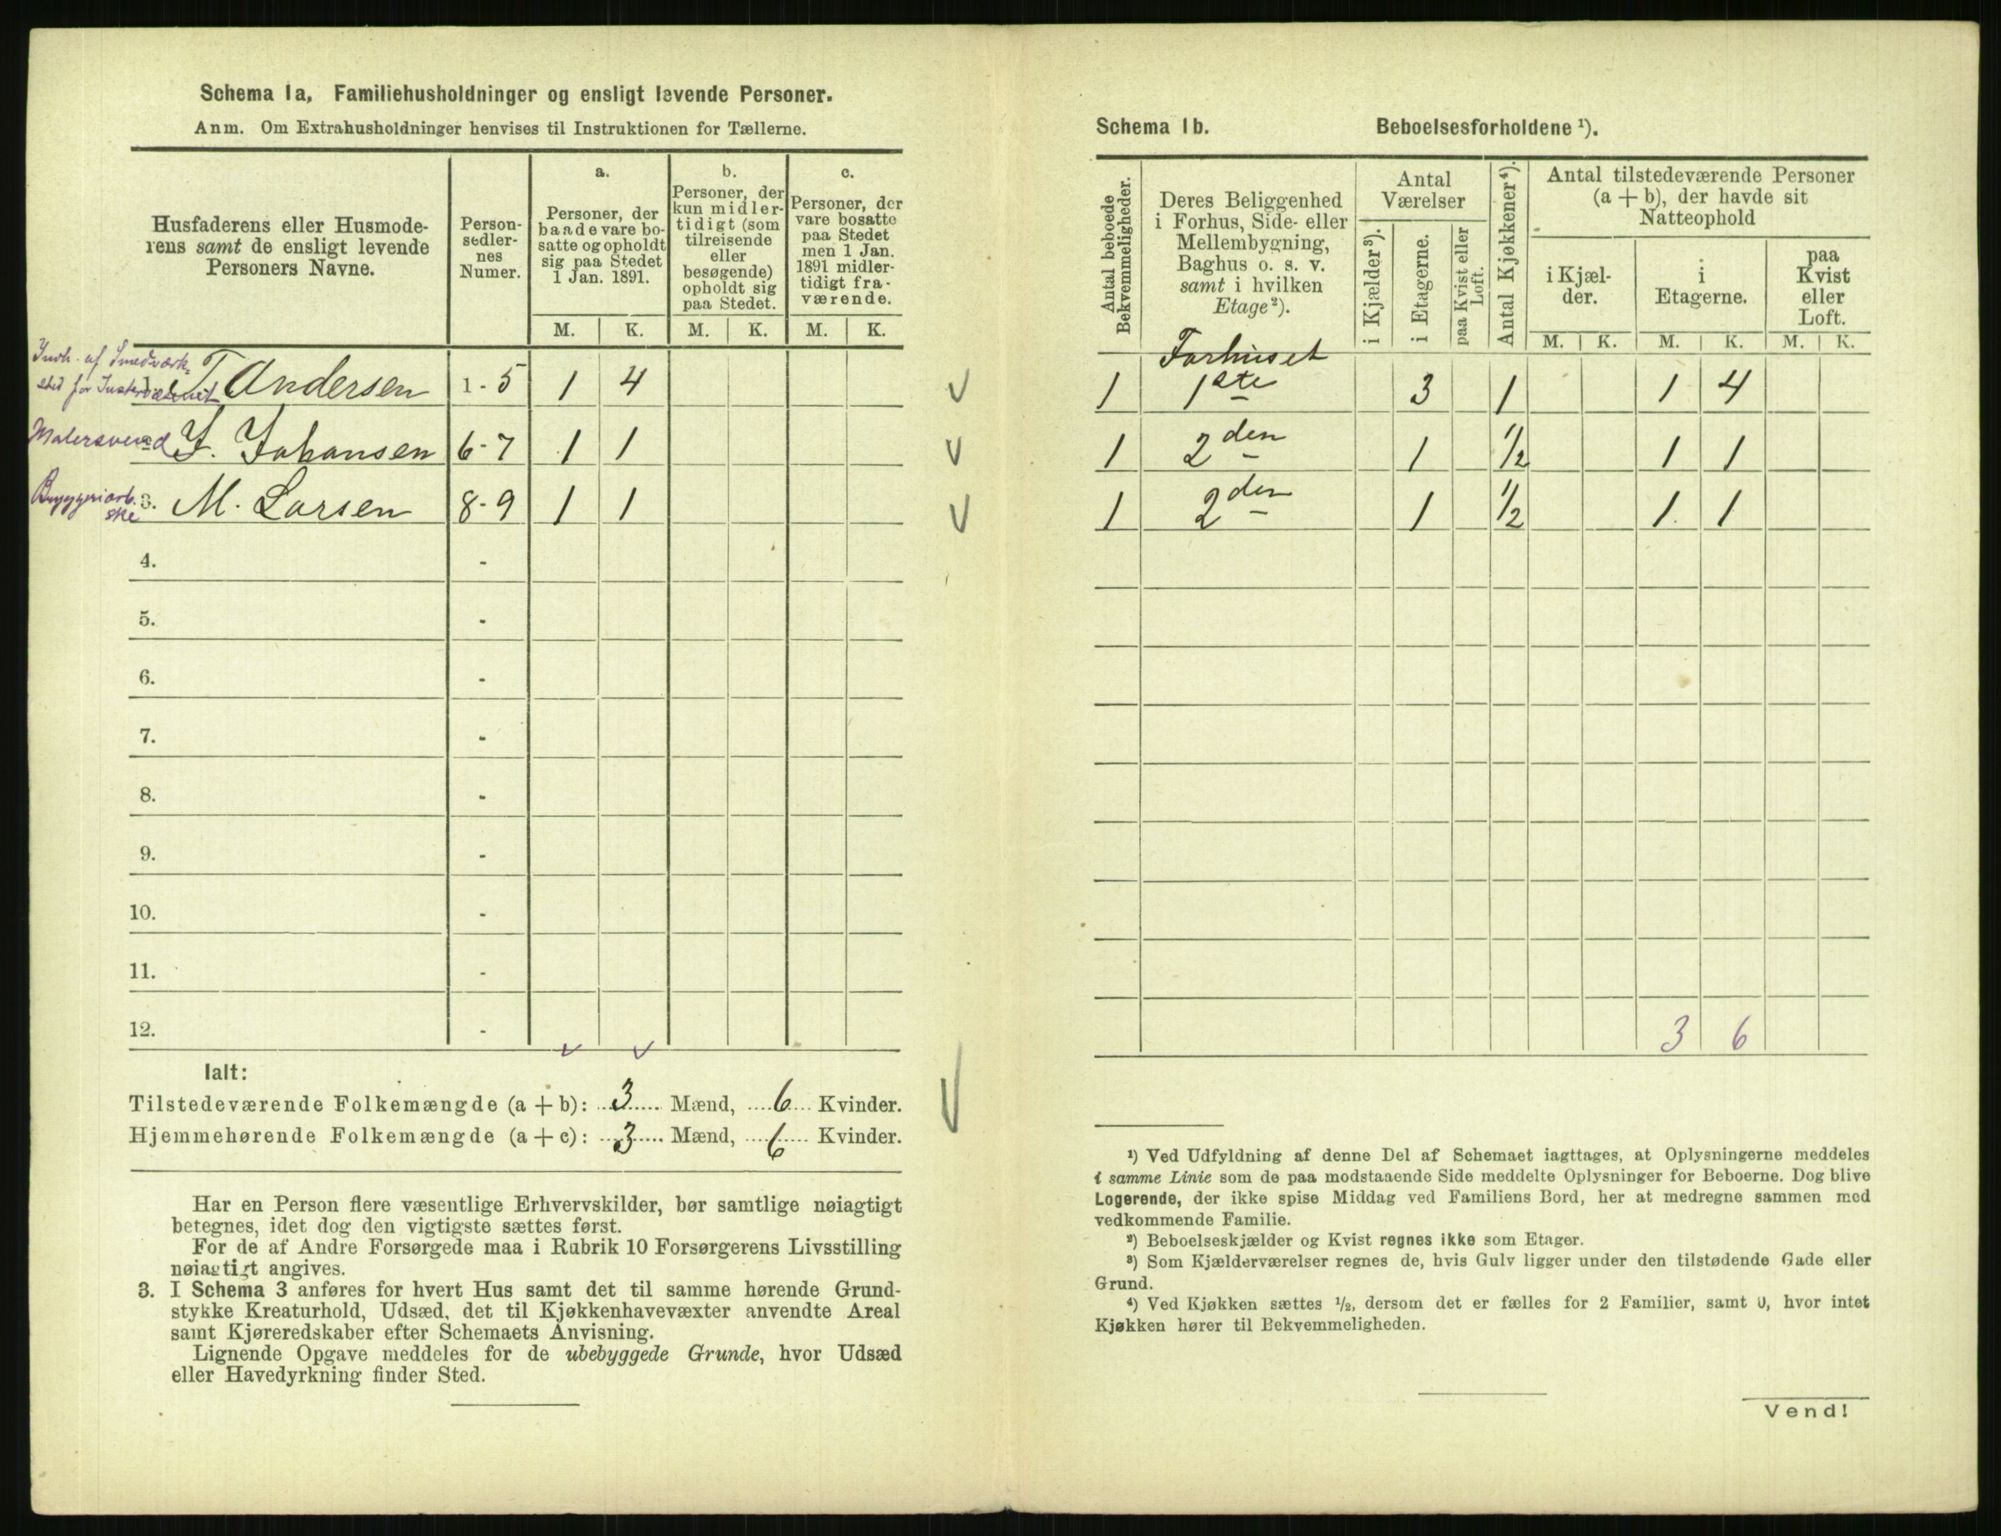 Schema 1a. Familiehusholdninger og ensligt levende Personer.
Anm. Om Extrahusholdninger henvises til Instruktionen for Tællerne.
Husfaderens eller Husmode-
rens samt de ensligt levende
Personers Navne.
Person-
sedler-
nes
Numer.
a.
Personer, der
baade vare bo-
satte og opholdt
sig paa Stedet
1 Jan. 1891.
b.
Personer, der
kun midler-
tidigt (som
tilreisende
eller
besøgende)
opholdt sig
paa Stedet.
c.
Personer, der
vare bosatte
paa Stedet
men 1 Jan.
1891 midler-
tidigt fra-
værende.
M. K. M. K. M. K.
Indh. af Smedværk-
sted for
T. Andersen 1 - 5 1 4
Malersvend J. Johansen 6 - 7 1 1
Bryggeriarb. 3. M. Larsen 8 - 9 1 1
4. -
5. -
6. -
7. -
8. -
9. -
10. -
11. -
12. -
Ialt:
Tilstedeværende Folkemængde (a + b): 3 Mænd, 6 Kvinder.
Hjemmehørende Folkemængde (a + c): 3 Mænd, 6 Kvinder.
Har en Person flere væsentlige Erhvervskilder, bør samtlige nøiagtigt
betegnes, idet dog den vigtigste sættes først.
For de af Andre Forsørgede maa i Rubrik 10 Forsørgerens Livsstilling
nøiagtigt angives.
3. I Schema 3 anføres for hvert Hus samt det til samme hørende Grund-
stykke Kreaturhold, Udsæd, det til Kjøkkenhavevæxter anvendte Areal
samt Kjøreredskaber efter Schemaets Anvisning.
Lignende Opgave meddeles for de ubebyggede Grunde, hvor Udsæd
eller Havedyrkning finder Sted.
Schema 1b. Beboelsesforholdene ¹).
Antal beboede
Bekvemmeligheder.
Deres Beliggenhed
i Forhus, Side- eller
Mellembygning,
Baghus o. s. v.
samt i hvilken
Etage²).
Antal
Værelser
i Kjælder³).
i Etagerne.
paa Kvist eller
Loft.
Antal Kjøkkener⁴).
Antal tilstedeværende Personer
(a + b), der havde sit
Natteophold
i Kjæl-
der.
i
Etagerne.
paa
Kvist
eller
Loft.
M. K. M. K. M. K.
Forhuset
1 1ste 3 1 1 4
1 2den 1 1/2 1 1
1 2den 1 1/2 1 1
3 6
¹) Ved Udfyldning af denne Del af Schemaet iagttages, at Oplysningerne meddeles
i samme Linie som de paa modstaaende Side meddelte Oplysninger for Beboerne. Dog blive
Logerende, der ikke spise Middag ved Familiens Bord, her at medregne sammen med
vedkommende Familie.
²) Beboelseskjælder og Kvist regnes ikke som Etager.
³) Som Kjælderværelser regnes de, hvis Gulv ligger under den tilstødende Gade eller
Grund.
⁴) Ved Kjøkken sættes 1/2, dersom det er fælles for 2 Familier, samt 0, hvor intet
Kjøkken hører til Bekvemmeligheden.
Vend!